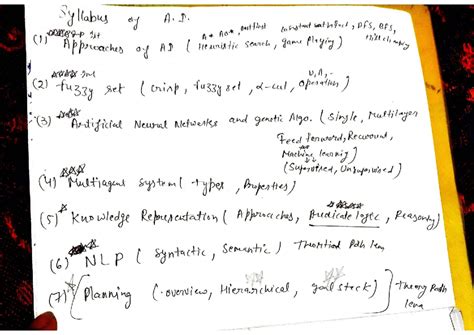 Syllabus of A.I.
A* AO*, constraint satisfact, DFS, BFS,
(1) Approaches of AI (Heuristic search, game Playing) Hill climbing
U, ∧, -
(2) fuzzy set (crisp, fuzzy set, α-cut, operation)
(3) Artificial Neural Networks and genetic Algo. (Single, Multilayer
Feed forward, Recurrent,
Machine learning)
(Supervised, Unsupervised)
(4) Multiagent System (types, Properties)
(5) Knowledge Representation (Approaches, Predicate logic, Reasoning)
(6) NLP (Syntactic, Semantic)
(7) Planning (overview, Hierarchical, goal stack) Theory